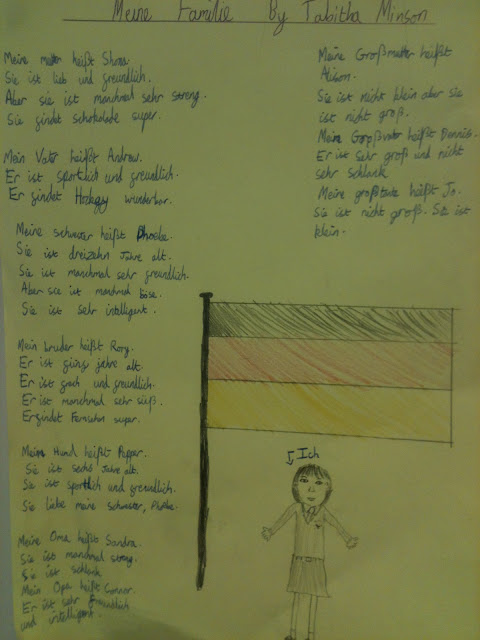 Meine Familie By Tabitha Minson
Meine mutter heißt Shona.
Sie ist lieb und greundlich.
Aber sie ist manchmal sehr streng.
Sie gindet schokolade super.
Mein Vater heißt Andrew.
Er ist sportlich und greundlich.
Er gindet Hockey wunderbar.
Meine schwester heißt Phoebe.
Sie ist dreizehn Jahre alt.
Sie ist manchmal sehr greundlich.
Aber sie ist manchmal böse.
Sie ist sehr intelligent.
Mein bruder heißt Rory.
Er ist güng jahre alt.
Er ist grech und greundlich.
Er ist manchmal sehr süß.
Er gindet Fernsehn super.
Meine Hund heißt Pepper.
Sie ist sechs Jahre alt.
Sie ist sportlich und greundlich.
Sie liebe meine schwester, Phoebe.
Meine Oma heißt Sandra.
Sie ist manchmal streng.
Sie ist schlank
Mein Opa heißt Connor.
Er ist sehr freundlich
und intelligent.
Meine Großmutter heißt
Alison.
Sie ist nicht klein aber sie
ist nicht groß.
Mein Großvater heißt Dennis.
Er ist sehr groß und nicht
sehr schlank
Meine großtante heißt Jo.
Sie ist nicht groß. Sie ist
klein.
Ich